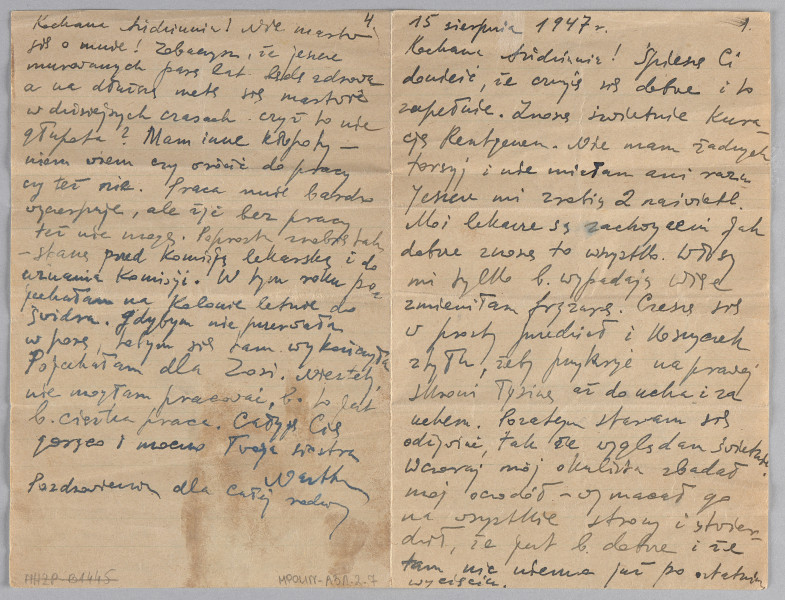 15 sierpnia 1947 r. 1.
Kochana ! Śpieszę Ci
donieść, że czuję się dobrze i to
zupełnie. Znoszę świetnie kura-
cję Rentgenem. Nie mam żadnych
torsyj i nie miałam ani razu
Jeszcze mi zrobią 2 naświetl.
Moi lekarze są zachwyceni jak
dobrze znoszę to wszystko. Włosy
mi tylko b. wypadają więc
zmieniłam fryzurę. Czeszę się
w prosty przedział i koszyczek
z tyłu, żeby przykryć na prawej
stronie łysinę aż do ucha i za
uchem. Pozatym staram się
odżywiać, tak że wyglądam świetnie.
Wczoraj mój okulista zbadał
mój oczodół - wymacał go
na wszystkie strony i stwier-
dził, że jest b. dobrze i że
tam nic niema już po ostatnim
wycięciu.
4.
Kochana ! Nie martw
się o mnie! Zobaczysz, że jeszcze
murowanych parę lat będę zdrowa
a na dłuższą metę się martwić
w dzisiejszych czasach czyż to nie
głupota? Mam inne kłopoty -
niem wiem czy wrócić do pracy
czy też nie. Praca mnie bardzo
wyczerpuje, ale żyć bez pracy
też nie mogę. Poprostu zrobię tak
- stanę przed Komisją lekarską i do
uznania Komisji. W tym roku po-
jechałam na Kolonie letnie do
Świdra. Gdybym nie przerwała
w porę, to bym się tam wykończyła
Pojechałam dla Zosi. Niestety
nie mogłam pracować, b. to jest
b. ciężka praca. Całuję Cię
gorąco i mocno Twoja siostra
Pozdrowienia dla całej rodziny
HHZP-B1445
MPOLIN-A311-2-7